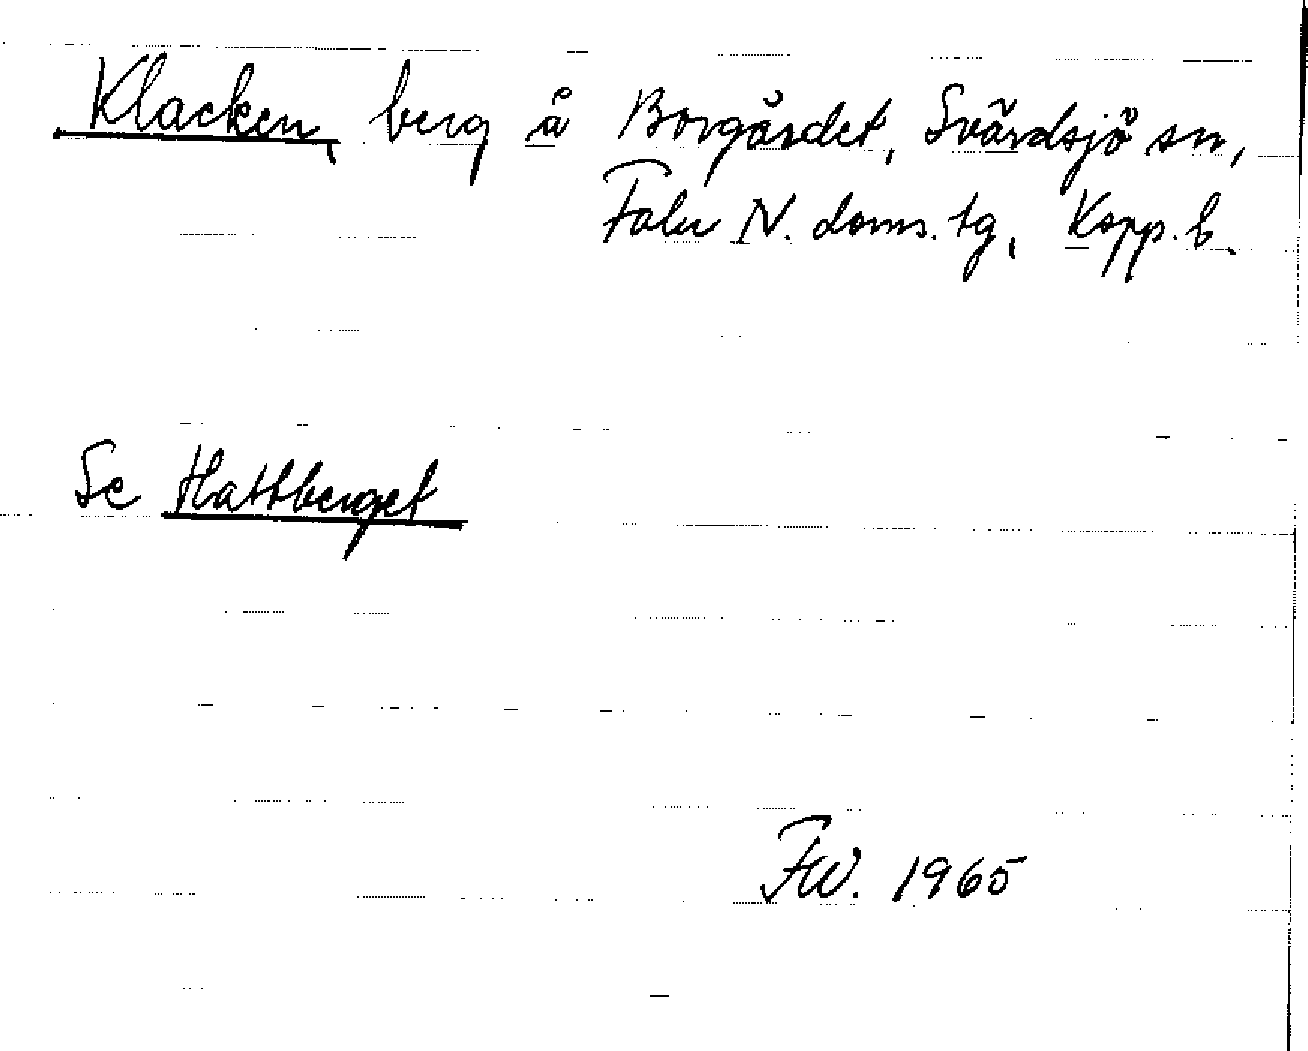 Klacken, berg å Borgärdet, Svärdsjö sn,
Falu N. doms. tg, Kopp. l.
Se Hattberget
FW. 1965